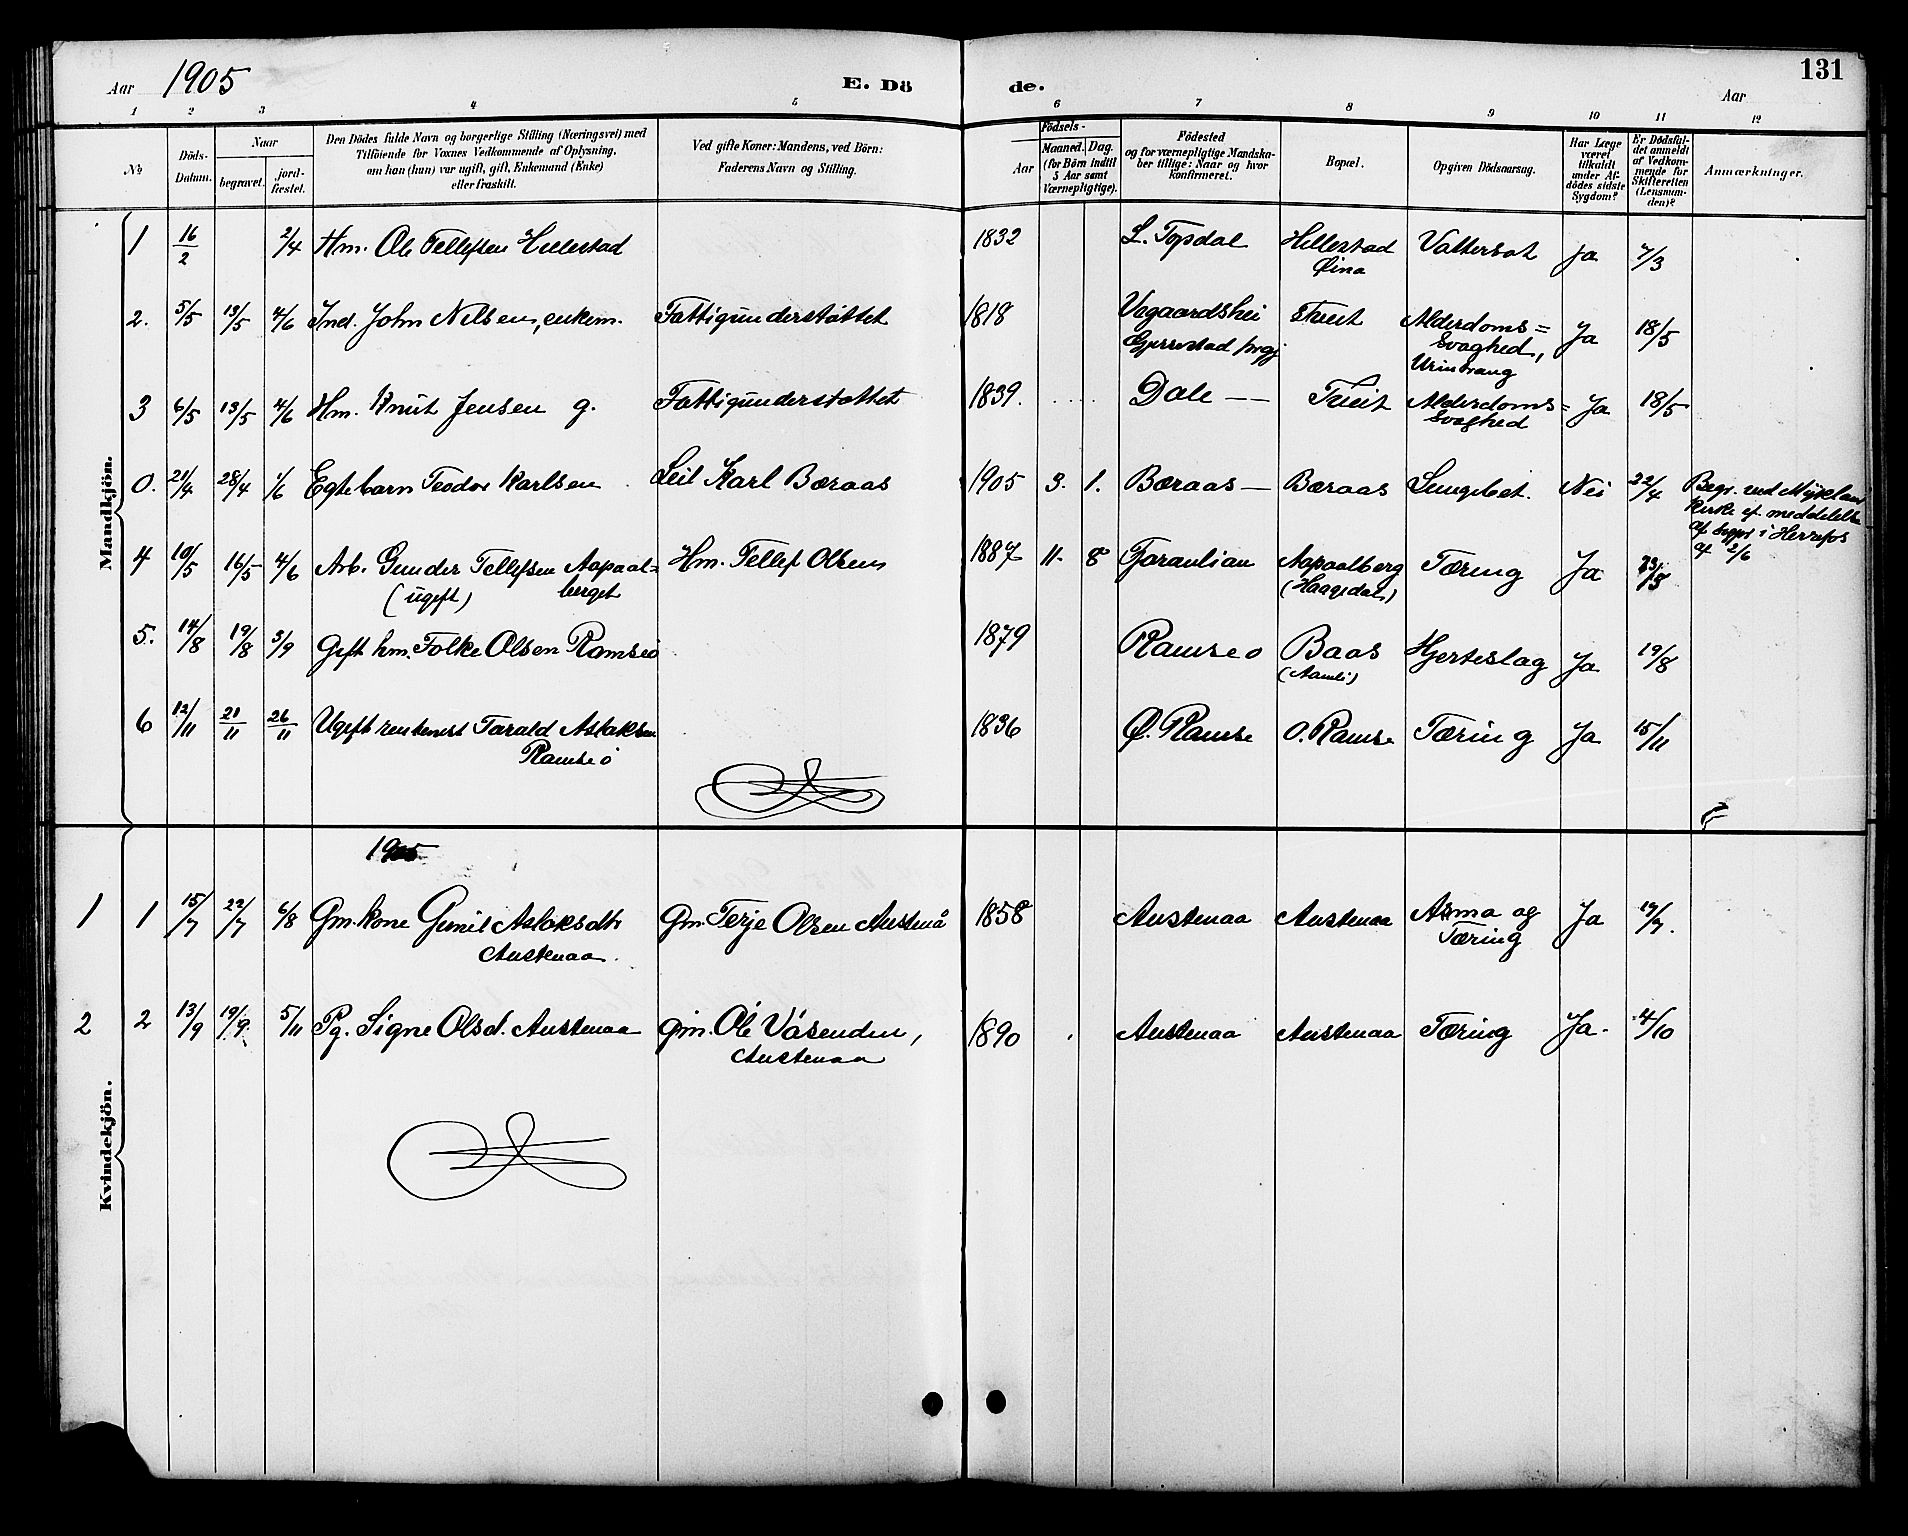 Aar 1905 E. Dö de. Aar 131
1 2 3 4 5 6 7 8 9 10 11 12
№
Döds-Datum.
Naar
begravet.
jord-fæstet.
Den Dödes fulde Navn og borgerlige Stilling (Næringsvei) med
Tilföiende for Voxnes Vedkommende af Oplysning,
om han (hun) var ugift, gift, Enkemand (Enke)
eller fraskilt.
Ved gifte Koner: Mandens, ved Börn:
Faderens Navn og Stilling.
Födsels-
Aar
Maaned. Dag.
(for Börn indtil
5 Aar samt
Værnepligtige).
Födested
og for værnepligtige Mandska-
ber tillige: Naar og hvor
konfirmeret.
Bopæl.
Opgiven Dödsaarsag.
Har Læge
været
tilkaldt
under Af-
dödes sidste
Sygdom?
Er Dödsfal-
det anmeldt
af Vedkom-
mende for
Skifteretten
(Lensman-
den)?
Anmærkninger.
Mandkjön.
1 16/2 2/4 Hm. Ole Tellefsen Hillestad 1832 L. Topdal Hillestad Vattersot Ja 7/3
Øina
2. 5/5 13/5 4/6 Ind. John Nilsen, enkem. Fattigunderstøttet 1818 Vegaardshei Treit Alderdoms= Ja 18/5
Gjerrestad prgj Svaghed,
Urintvang
3 6/5 13/5 4/6 Hm. Knut Jensen g. Fattigunderstøttet 1839. Dale — Treit Alderdoms= Ja 18/5
Svaghed
0. 21/4 28/4 1/6 Egtebarn Teodor Karlsen Leil Karl Børaas 1905 3. 1. Børaas — Børaas Lungebet. Nei 22/4 Begr. ved Mykland
kirke ef. meddelelse
af sogpr i Herrefos
af 2/6
4 10/5 16/5 4/6 Arb. Gunder Tellefsen Aapaal= Hm. Tellef Olsen 1887 11. 8 Fjøraulian Aapaalberg Tæring Ja 23/5
(ugift) berget (Haagedal)
5. 14/8 19/8 3/9 Gift hm. Folke Olsen Ramseø 1879 Ramseø Baas Hjerteslag Ja 19/8
(Aamli)
6 12/11 21/11 26/11 Ugift rentenist Tarald Aslaksen 1836 Ø. Ramse Ø. Ramse Tæring Ja 15/11
Ramseø
1905
Kvindekjön.
1 1 15/7 22/7 6/8 Gm.kone Gunil Aslaksdtr Gm. Terje Olsen Austenå 1858 Austenaa Austenaa Asma og Ja 19/7.
Austenaa. Tæring
2 2 13/9 19/9. 5/11 Pg. Signe Olsd. Austenaa Gm. Ole Våsenden, 1890 Austenaa Austenaa Tæring Ja. 4/10
Austenaa